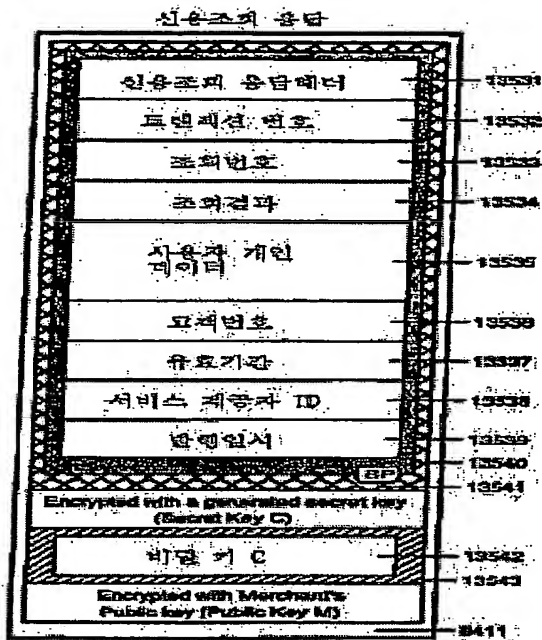 신용조회 응답
신용조회 응답헤더 13531
트랜잭션 번호 13532
조회번호 13533
조회결과 13534
사용자 개인
데이터 13535
고객번호 13536
유효기간 13537
서비스 제공자 ID 13538
발행일시 13539
13540
13541
Encrypted with a generated secret key
(Secret Key C)
비밀 키 C 13542
13543
Encrypted with Merchant's
Public key (Public Key M)